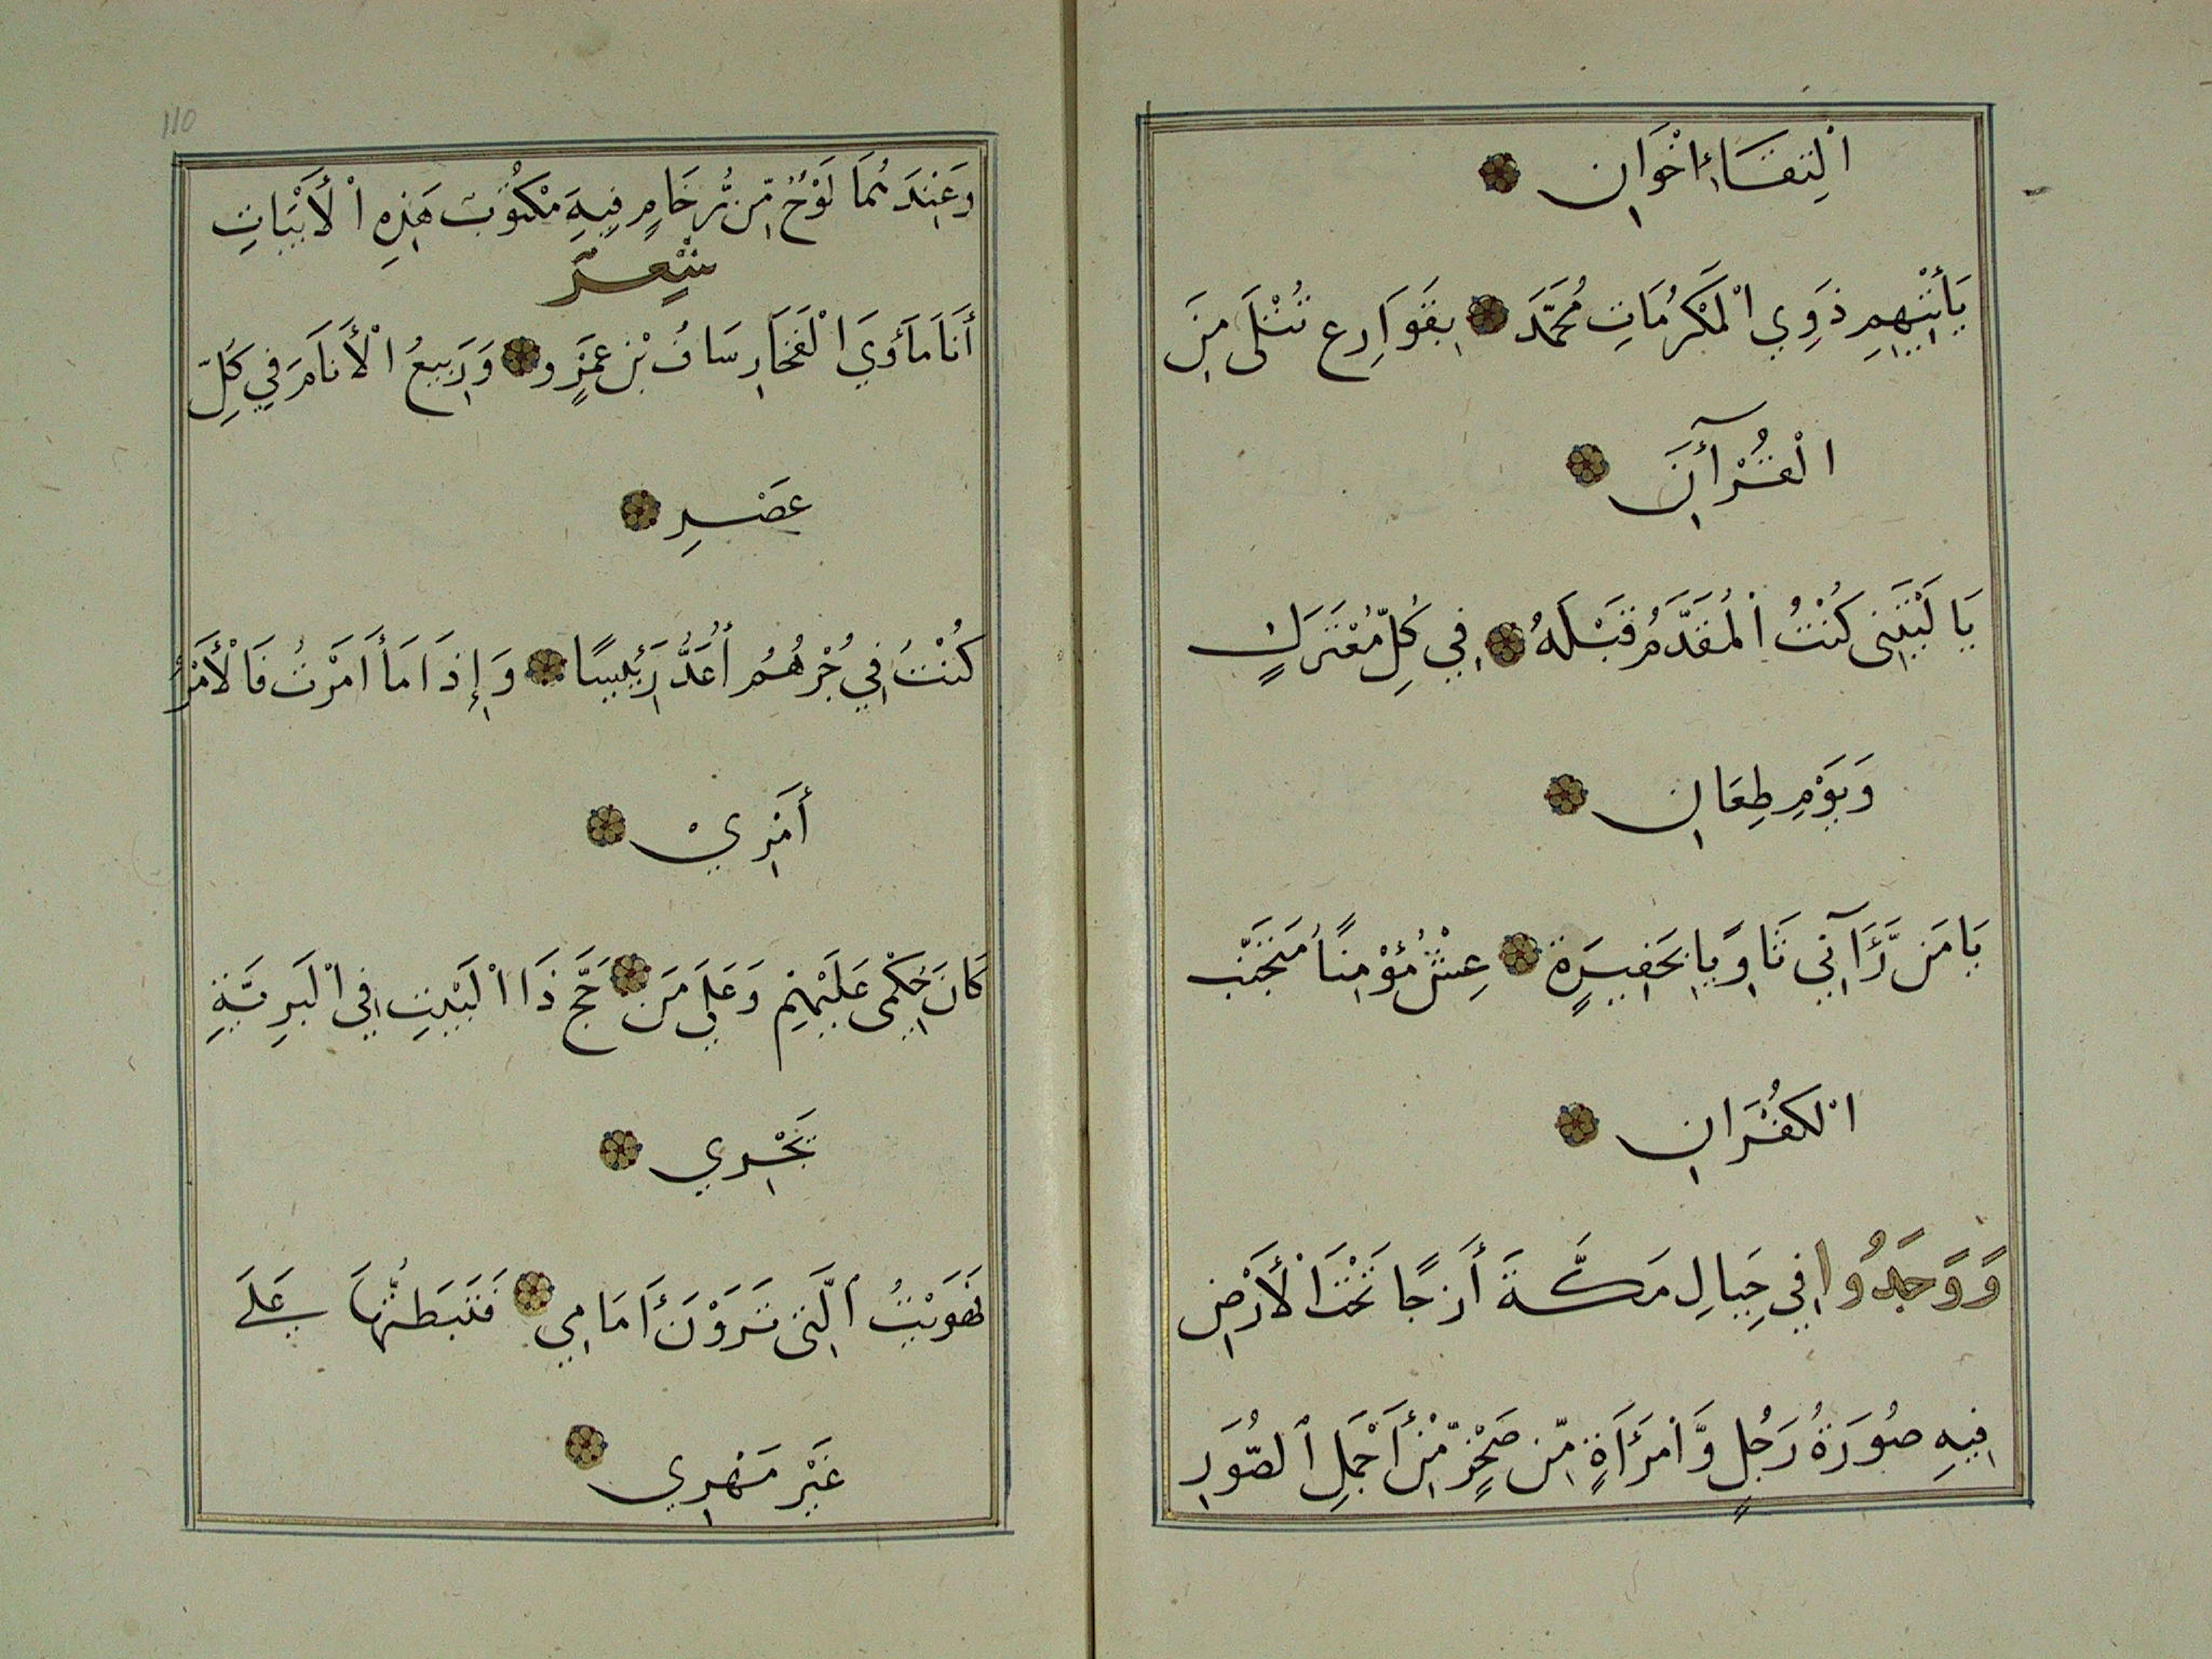 الِتِقَاءُ اخْوَانِ
يَأْتِيهِمِ ذَوِي الْمَكْرُمَاتِ مُحَمَّدَ بِقَوَارِعٍ تُتْلَى مِنَ
الْقُرْآنِ
يَا لَيْتَنِي كُنْتُ الْمُقَدَّمُ قَبْلَهُ فِي كُلِّ مُعْتَرَكٍ
وَيَوْمِ طِعَانِ
يَا مَن رَّآنِي ثَاوِيًا بِحَفِيرَةٍ عِشْ مُؤْمِنًا مُتَجَنِّبَ
الْكُفْرَانِ
وَوَجَدُوا فِي جِبَالِ مَكَّةَ أَزجًا تَحْتَ الْأَرْضِ
فِيهِ صُورَةُ رَجُلٍ وَّامْرَأَةٍ مِّن صَخْرٍ مِّنْ أَجْمَلِ الصُّوَرِ
110
وَعِنْدَهُمَا لَوْحٌ مِّن رُّخَامٍ فِيهِ مَكْتُوبٌ هَذِهِ الْأَبْيَاتِ
شِعْرٌ
أَنَا مَأْوَى الْفَخَارِ سَافُ بْنُ عَمْرٍو وَرَبِيعُ الْأَنَامِ فِي كُلِّ
عَصْرِ
كُنْتُ فِي جُرْهُمٍ أُعَدُّ رَئِيسًا وَإِذَا مَا أَمَرْتُ فَالْأَمْرُ
أَمْرِيْ
كَانَ حُكْمِي عَلَيْهِمْ وَعَلَى مَنْ حَجَّ ذَا الْبَيْتِ فِي الْبَرِيَّةِ
تَجْرِي
فَهَوَيْتُ الَّتِي تَرَوْنَ أَمَامِي فَتَبَطَنْتُهَا عَلَى
غَيْرِ مَهْرِي